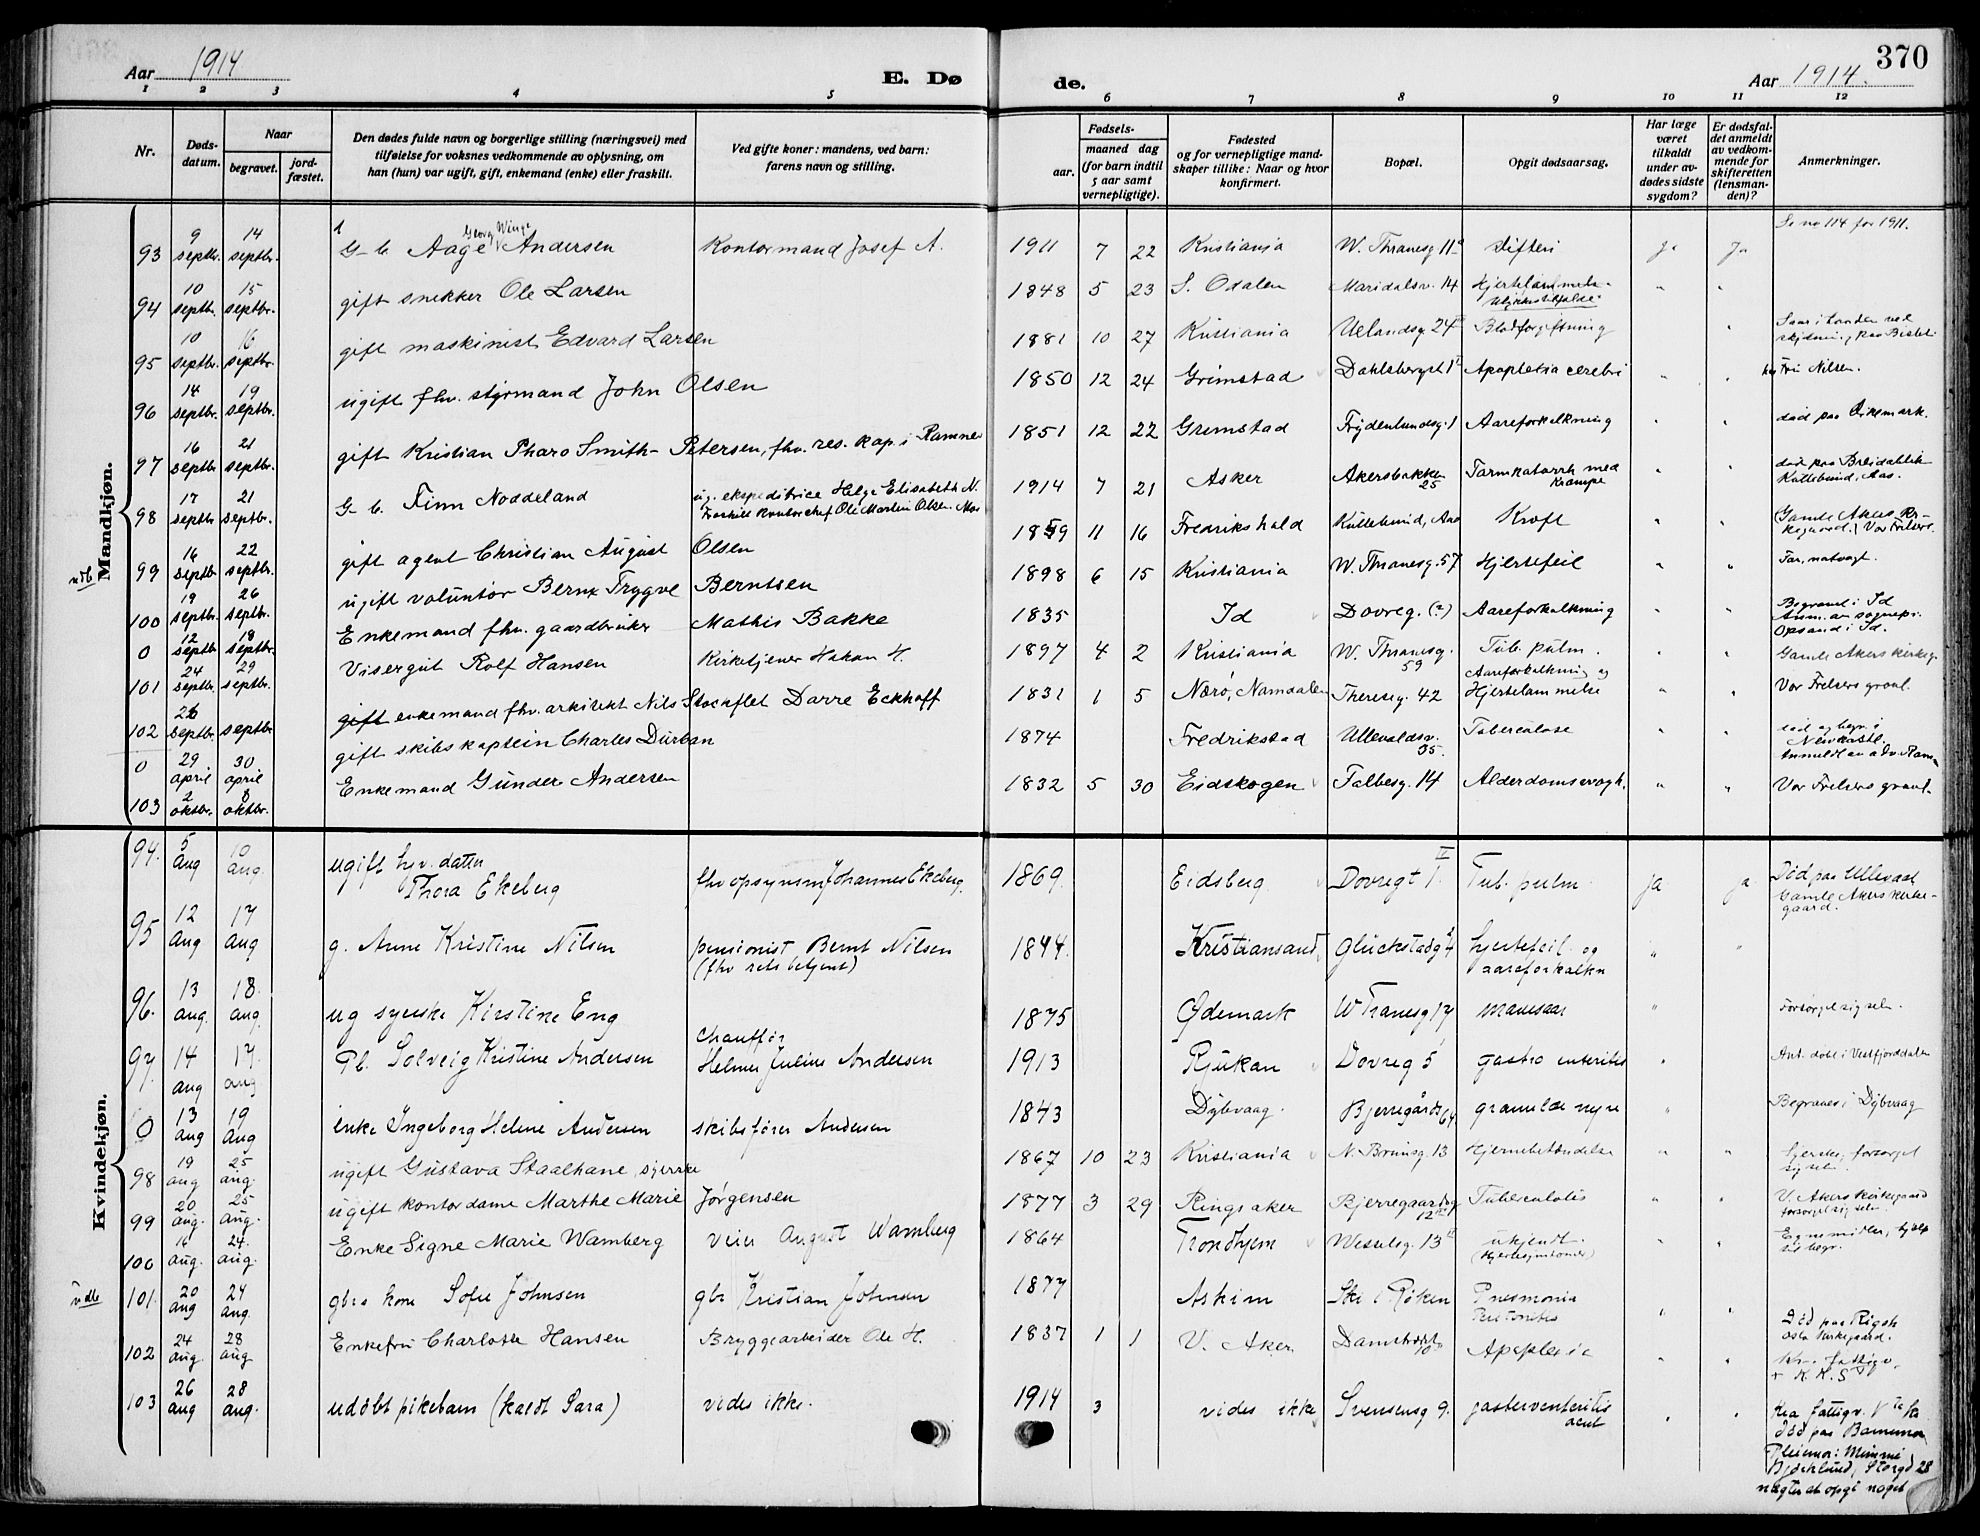 370
Aar 1914
E. Dø
de.
Aar 1914.
1 2 3 4 5 6 7 8 9 10 11 12
Nr.
Døds-
datum.
Naar
begravet.
jord-
fæstet.
Den dødes fulde navn og borgerlige stilling (næringsvei) med
tilføielse for voksnes vedkommende av oplysning, om
han (hun) var ugift, gift, enkemand (enke) eller fraskilt.
Ved gifte koner: mandens, ved barn:
farens navn og stilling.
Fødsels-
aar.
maaned dag
(for barn indtil
5 aar samt
vernepligtige).
Fødested
og for vernepligtige mand-
skaper tillike: Naar og hvor
konfirmert.
Bopæl.
Opgit dødsaarsag.
Har læge
været
tilkaldt
under av-
dødes sidste
sygdom?
Er dødsfal-
det anmeldt
av vedkom-
mende for
skifteretten
(lensman-
den)?
Anmerkninger.
Mandkjøn.
93 9 septbr. 14 septbr. G. b. Aage Georg Winge Andersen Kontormand Josef A. 1911 7 22 Kristiania W. Thranesg 11a Difteri ja ja Se no 114 for 1911.
94 10 septbr. 15 septbr. gift snekker Ole Larsen 1848 5 23 S. Odalen Maridalsv. 14 " "
95 10 septbr. 16 septbr. gift maskinist Edvard Larsen 1881 10 27 Kristiania Uelandsg. 24 Blodforgiftning "
96 14 septbr. 19 septbr. ugift fhv. styrmand John Olsen 1850 12 24 Grimstad Dahlsbergst 1 Apoplexia cerebri " " Fru Nilsen.
97 16 septbr. 21 septbr. gift Kristian Pharo Smith-Petersen, fhv. res. kap. i Ramnes 1851 12 22 Grimstad Frydenlundsg. 1 Aareforkalkning " " død paa Dikemark.
98 17 septbr. 21 septbr. G. b. Finn Noddeland ug. ekspeditrice Helga Elisabeth N.
Fraskilt kontorchef Ole Martin Olsen Moe 1914 7 21 Asker Akersbakken
25 Tarmkatarrh med
Krampe " " død paa Breidablik
Kattebund, Aas.
udb 99 16 septbr. 22 septbr. gift agent Christian August Olsen 1859 11 16 Fredrikshald Kræft " " Gamle Akers kir-
kegaard. Vor Frelsers.
100 19 septbr. 26 septbr. ugift volontør Bernt Tryggve Berntsen 1898 6 15 Kristiania W. Thranesg. 57 Hjertefeil " "
0 12 septbr. 18 septbr. Enkemand fhv. gaardbruker Mathis Bakke 1835 Id Dovreg. (?) Aareforkalkning " " Begravet i Id
Anm. av sognepr.
Opsand i Id.
101 24 septbr. 29 septbr. Visergut Rolf Hansen Kirketjener Hakon H. 1897 4 2 Kristiania W. Thranesg.
59 Tub. pulm. " " Gamle Akers kirkeg.
102 26 septbr. septbr. gift enkemand fhv. arkitekt Nils Stockflet Darre Eckhoff 1831 1 5 Nærø, Namdalen Theresesg. 42 Aareforkalkning og
Hjertelammelse " " Vor Frelsers gravl.
0 29 april 30 april gift skibskaptein Charles Durban 1874 Fredrikstad Ullevoldsv.
35. Tuberculose " "
103 2 oktbr. 8 oktbr. Enkemand Gunder Andersen 1832 5 30 Eidskogen Falbesg. 14 Alderdomssvagh. " " Vor Frelsers gravl.
Kvindekjøn.
94. 5 Aug 10 Aug. ugift hv. datter
Thora Ekeberg fhv opsynsm Johannes Ekeberg. 1869. Eidsberg Dovregt 1 IV Tub. pulm. ja ja Død paa Ullevaal
Gamle Akers kirke-
gaard.
95 12 Aug 17 Aug g. Anne Kristine Nilsen pensionist Bernt Nilsen
(fhv retsbetjent) 1844. Kristiansand Glückstadg 4 hjertefeil og
aareforkalkn " "
96. 13 aug. 18. aug. ug syerske Kirstine Eng 1875 Ødemark W Tranesg 17 mavesaar " Forsørget sig selv.
97. 14 aug 17. aug Pb. Solveig Kristine Andersen Chauffør
Helmer Julius Andersen 1913 Rjukan Dovreg 5 gastro enteritis " Ant. døbt i Vestfjorddalen
0 13 aug 19 aug enke Ingeborg Helene Andersen skibsfører Andersen 1843 Dybvaag. Bjerregårds 64 " Begraves i Dybvaag
98 19 aug 25 aug. ugift Gustava Staalhane, syerske 1867 10 23 Kristiania N. Brunsg. 13 Hjernebetændelse " " Syerske, forsørget
sig selv.
99 20 aug. 25 aug. ugift kontordame Marthe Marie Jørgensen 1877 3 29 Ringsaker Bjerregaardsg
12 Tuberculosis " " V. Akers kirkegaard
forsørget sig selv.
100 16 aug. 24. aug. Enke Signe Marie Wamberg Veier August Wamberg 1864 Trondhjem Wesselsg. 13 ukjendt.
(Hjertesymtomer) " " Egne midler, hjælp
til begr.
101. 20 aug 24 aug. gbrs kone Sofie Johnsen gbr Kristian Johnsen 1877 Askim Ski i Røken Pneumonia
Peritonitis " " Død paa Rigsh
Oslo kirkegaard.
102 24 aug. 28 aug Enkefru Charlotte Hansen Bryggearbeider Ole H. 1837 1 1 V. Aker Damstredet
10 Apoplexia " "
+ K. K. S
103 26 aug 28 aug. udøbt pikebarn (kaldt Sara) vides ikke. 1914 3 vides ikke Svensensg 9. gasterventeritis
acut " " Kra fattigv.
død paa
Pleiemor: Mimmi
Bjørklund, Storgd 28
nægter at opgi noget